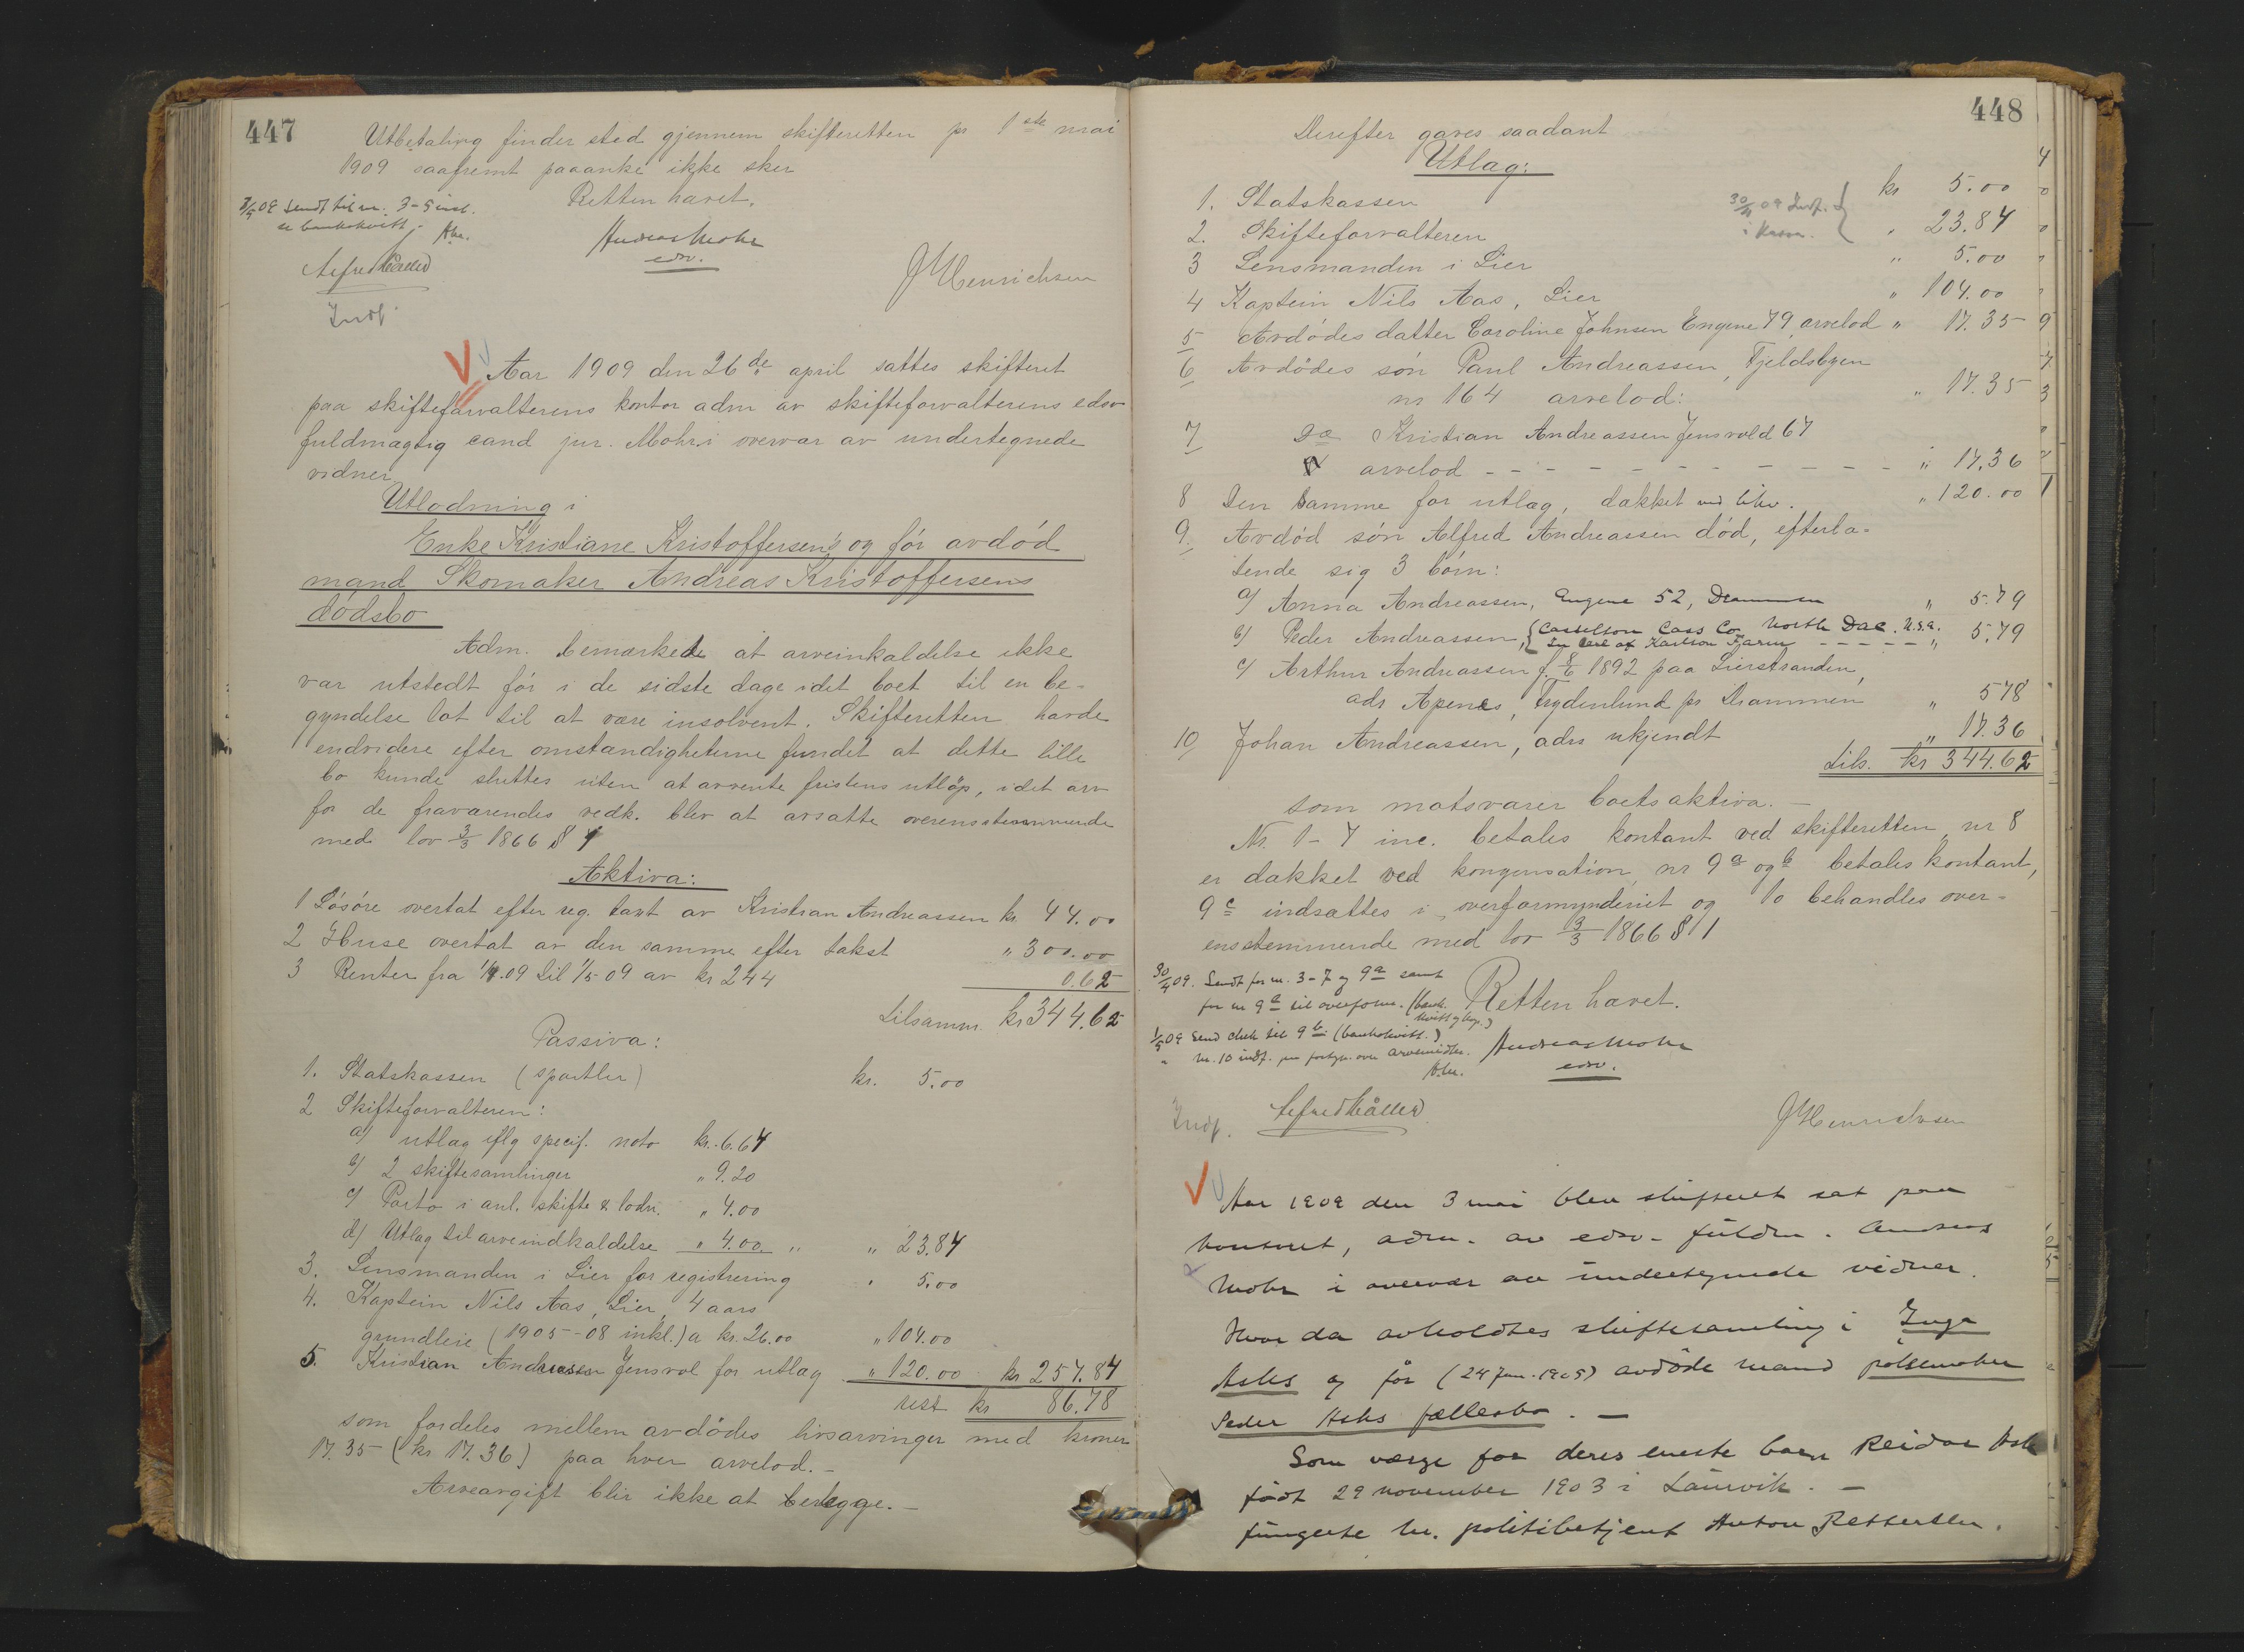 447
Utbetaling finder sted gjennem skifteretten pr 1ste mai
1909 saafremt paaanke ikke sker
Retten hævet.
Andreas Mohr
edsv.
J Henrichsen
Indf.
Aar 1909 den 26de april sattes skifteret
paa skifteforvalterens kontor adm av skifteforvalterens edsv
fuldmægtig cand jur. Mohr i overvær av undertegnede
vidner
Utlodning i
Enke Kristiane Kristoffersen's og før avdød
mand Skomaker Andreas Kristoffersens
dødsbo
Adm. bemærkede at arveinkaldelse ikke
var utstedt før i de sidste dage idet boet til en be-
gyndelse lot til at være insolvent. Skifteretten havde
endvidere efter omstændigheterne fundet at dette lille
bo kunde sluttes uten at avvente fristens utløp, idet arv
for de fraværendes vedk. blev at avsætte overensstemmende
med lov 3/3 1866 §
Aktiva:
1 Løsøre overtat efter reg. takst av Kristian Andreassen kr. 44.00
2 Huse overtat av den samme efter takst " 300.00
3 Renter fra 1/4.09 til 1/5 09 av kr 244 0.62
tilsamm. kr 344.62
Passiva:
1. Statskassen (sportler) kr. 5.00
2 Skifteforvalteren:
a) utlag iflg specif. nota kr. 6.64
b) 2 skiftesamlinger " 9.20
c) Porto i anl. skifte & lodn. " 4.00
d) Utlag til arveindkaldelse " 4.00 " " 23.84
3. Lensmanden i Lier for registrering " 5.00
4. Kaptein Nils Aas, Lier, 4 aars
grundleie (1905-08 inkl.) a kr. 26.00 " 104.00
5. Kristian Andreassen Jensvol for utlag " 120.00 kr 257.84
rest kr 86.78
som fordeles mellem avdødes livsarvinger med kroner
17.35 (kr 17.36) paa hver arvelod. -
Arveavgift blir ikke at beregge. -
448
Derefter gaves saadant
Utlag:
1. Statskassen kr 5.00
2. Skifteforvalteren " 23.84
3 Lensmanden i Lier " 5.00
4 Kaptein Nils Aas, Lier " 104.00
5 Avdødes datter Caroline Johnsen Engene 79, arvelod " 17.35
6 Avdødes søn Paul Andreassen, Fjeldsbyen
nr 164 arvelod: " 17.35
7 do Kristian Andreassen Jensvold 67
arvelod - - - - - - - - - - " 17.36
8 Den samme for utlag, dækket ved likv. " 120.00
9. Avdød søn Alfred Andreassen død, efterla-
tende sig 3 børn:
a) Anna Andreassen, Engene 52, Drammen " 5.79
b) Peder Andreassen, Casselton Cass Co North Dac. U.S.A. " 5.79
Karlson Farm
c) Arthur Andreassen f. 8/6 1892 paa Lierstranden,
adr Apenes, Frydenlund pr Drammen " 578
10 Johan Andreassen, adrs ukjendt " 17.36
tils. kr 344.62
som motsvarer boets aktiva. -
Nr. 1-7 inc. betales kontant ved skifteretten, nr 8
er dækket ved kompensation, nr 9a og b betales kontant,
9c indsættes i overformynderiet og 10 behandles over-
ensstemmende med lov 13/3 1866 § 11
30/4 09. Sendt for nr. 3-7 og 9a samt
for nr 9c til overform.
Retten hævet.
1/5 09 Send chek til 9b (bankkvitt.)
" nr. 10 indf. over arvemidler.
Andreas Mohr
edsv.
Indf.
J Henrichsen
Aar 1909 den 3 mai blev skifteret sat paa
kontoret, adm. av edsv. fuldm. Andreas
Mohr i overvær av undertegnede vidner.
Hvor da avholdtes skiftesamling i Inga
Asks og før (24 Jan. 1909) avdøde mand pølsemaker
Peder Asks fællesbo. -
Som værge for deres eneste barn Reidar Ask
født 29 november 1903 i Laurvik. -
fungerte hr. politibetjent Anton Pettersen.